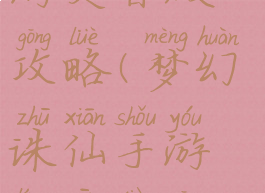 gōng lüè mèng huàn
攻略(梦幻
zhū xiān shǒu yóu
诛仙手游